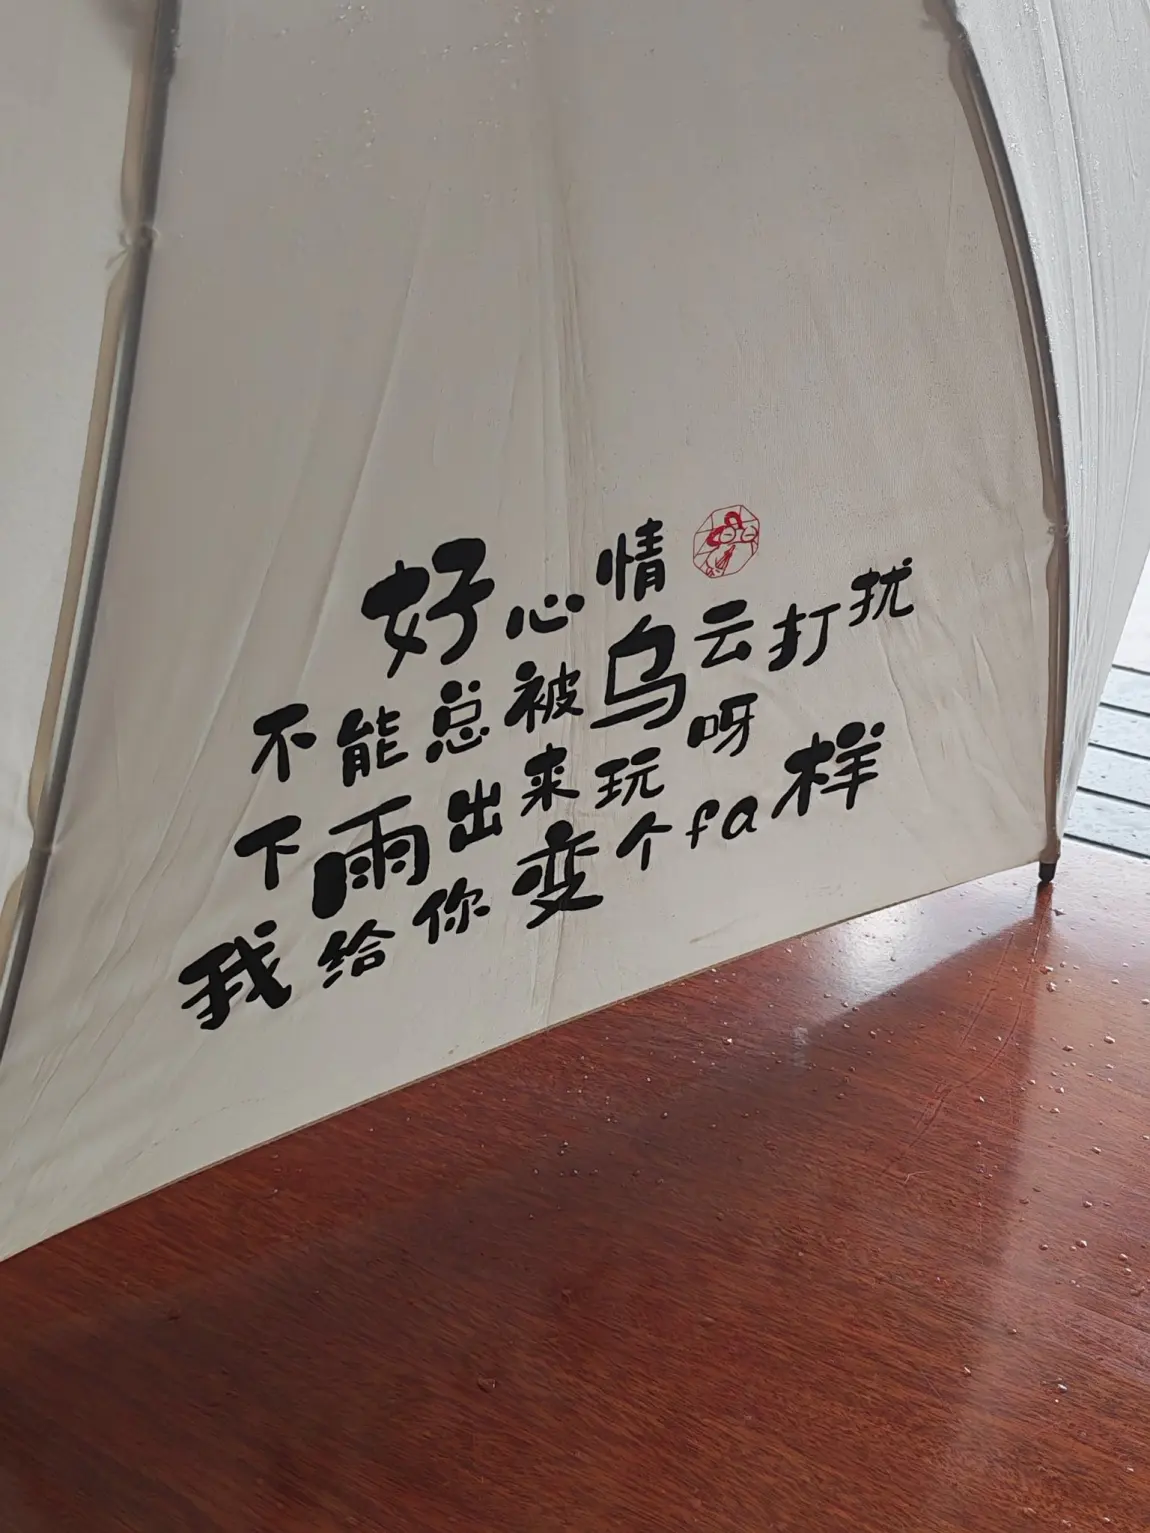 好心情
不能总被乌云打扰
下雨出来玩呀
我给你变个fa样